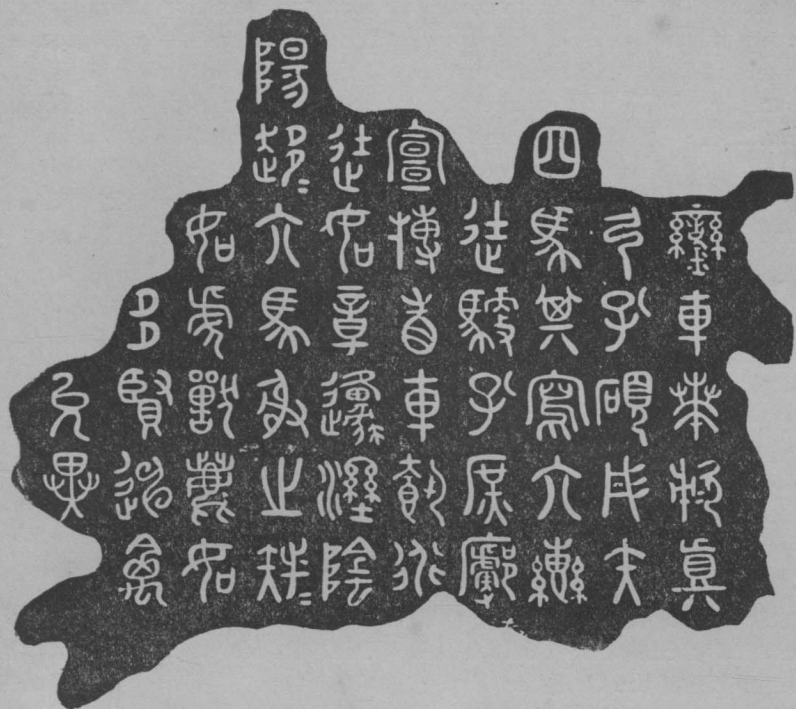 鑾車𠦪敕眞
弓孔碩彤矢
四馬其寫六轡
徒馭孔庶廓
宣搏眚車行
徒如章邍溼陰
陽趍=六馬射之
如虎獸鹿如
多賢迪禽
允異